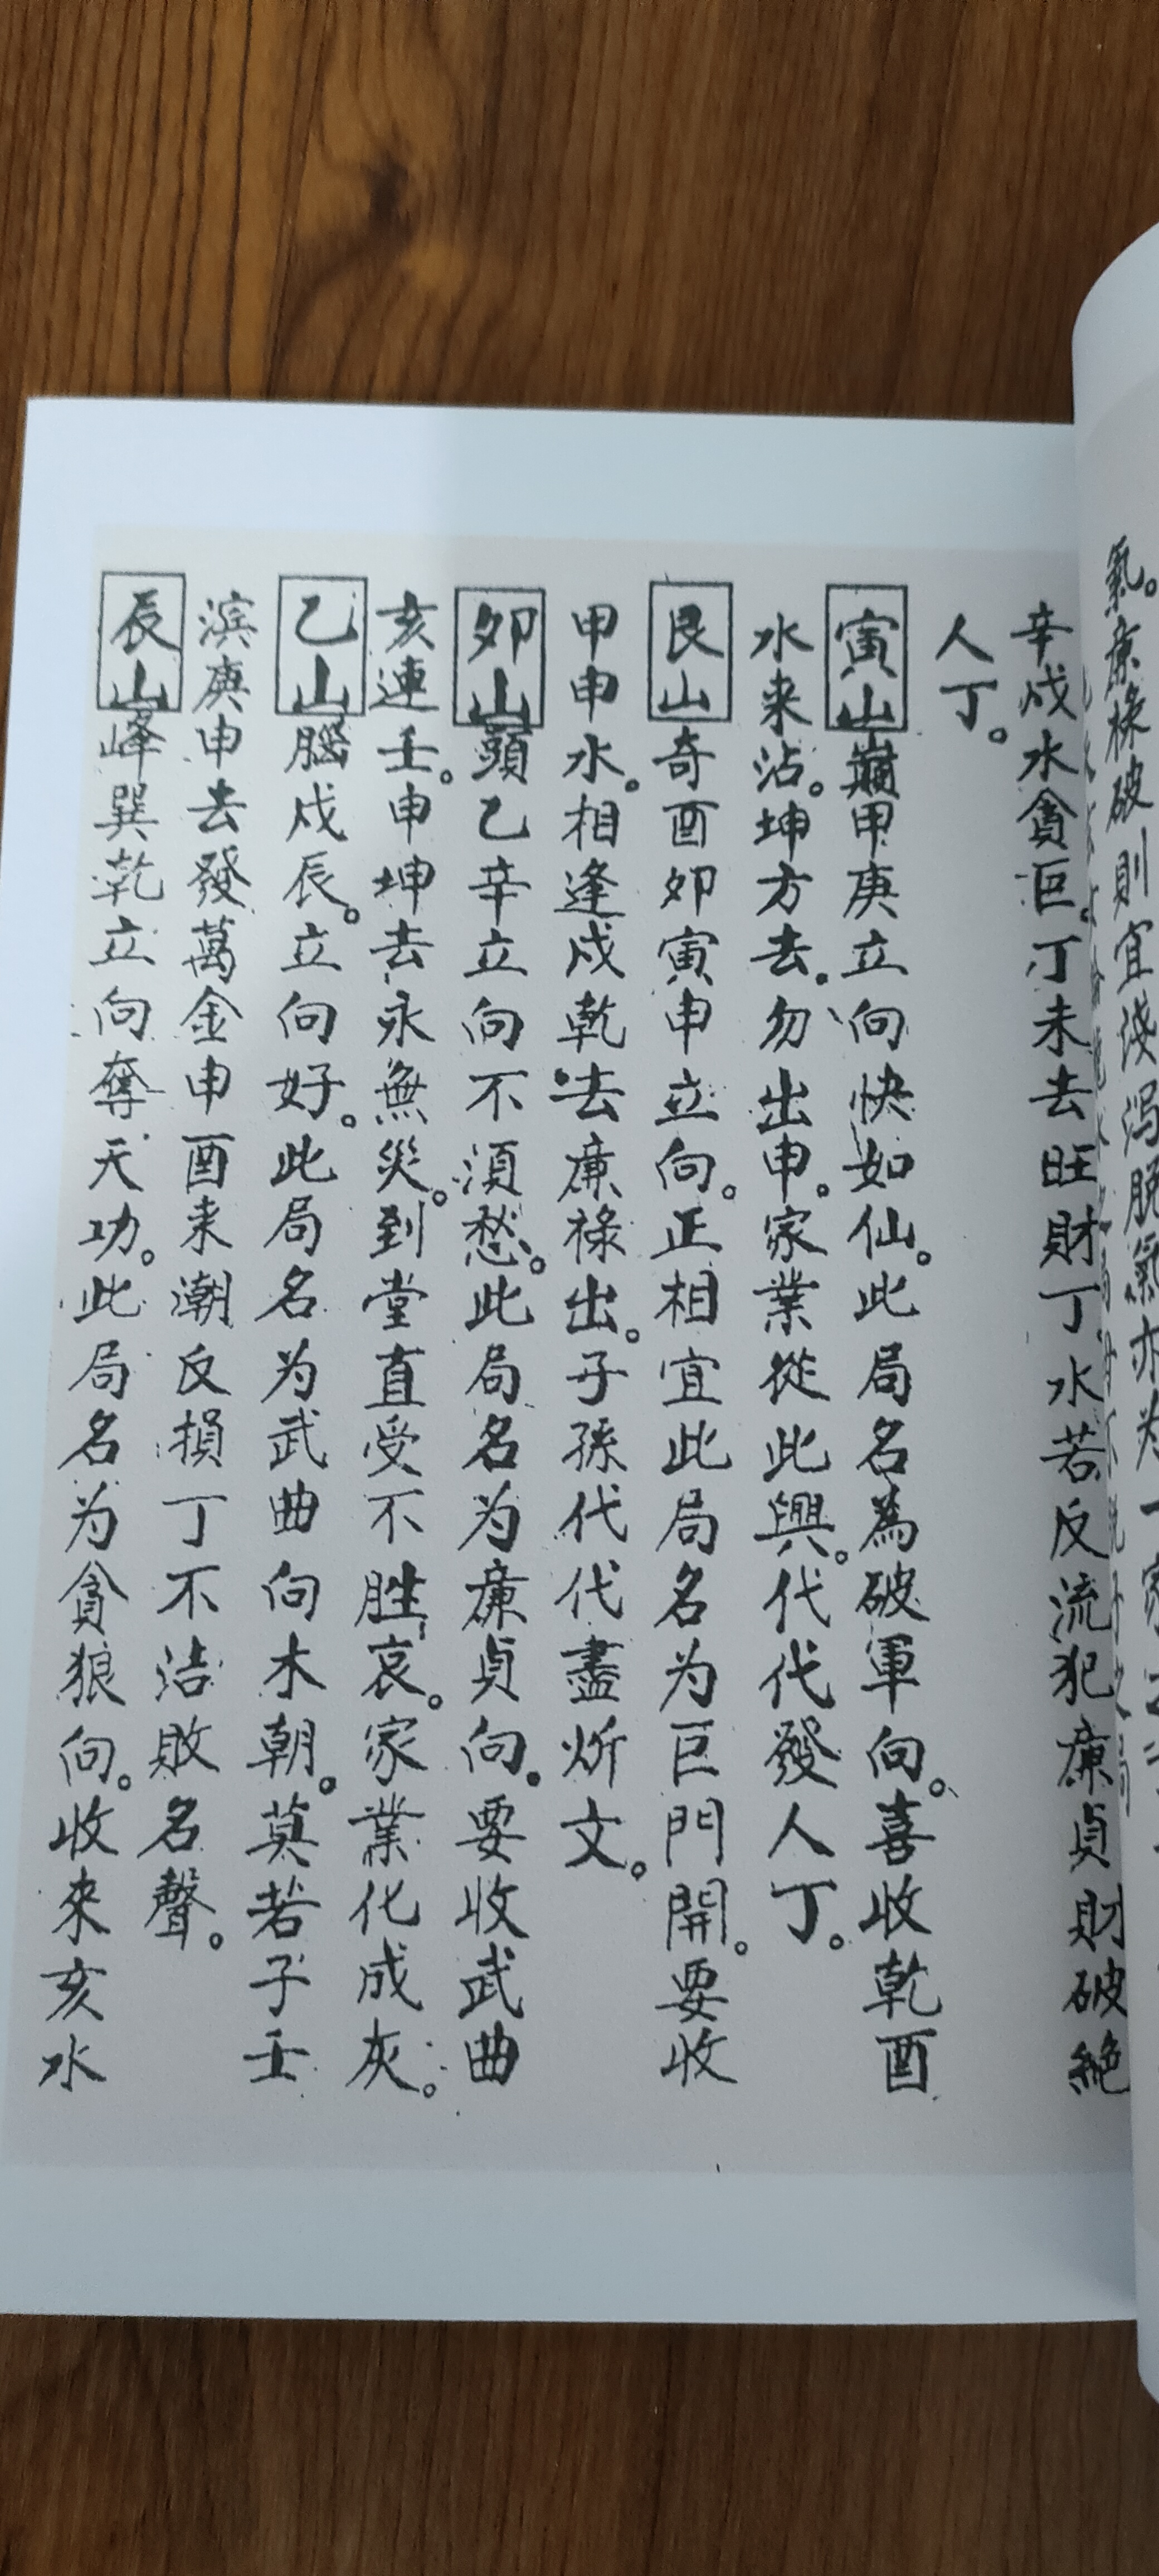 氣。廉祿破則宜淺瀉脫氣亦为一家
辛戍水貪巨。丁未去旺財丁水若反流犯廉貞財破絕
人丁。
寅山巔甲庚立向快如仙。此局名為破軍向。喜收乾酉
水来沾。坤方去。勿出申。家業從此興。代代發人丁。
艮山奇酉卯寅申立向。正相宜此局名为巨門開。要收
甲申水。相逢戍乾去廉祿出。子孫代代盡炘文。
卯山頭乙辛立向不須愁。此局名为廉貞向。要收武曲
亥連壬。申坤去永無災。到堂直受不胜哀。家業化成灰。
乙山腦戍辰。立向好。此局名为武曲向木朝。莫若子壬
滨庚申去發萬金申酉来潮反損丁不洁敗名聲。
辰山峰巽乾立向奪天功。此局名为貪狼向。收來亥水